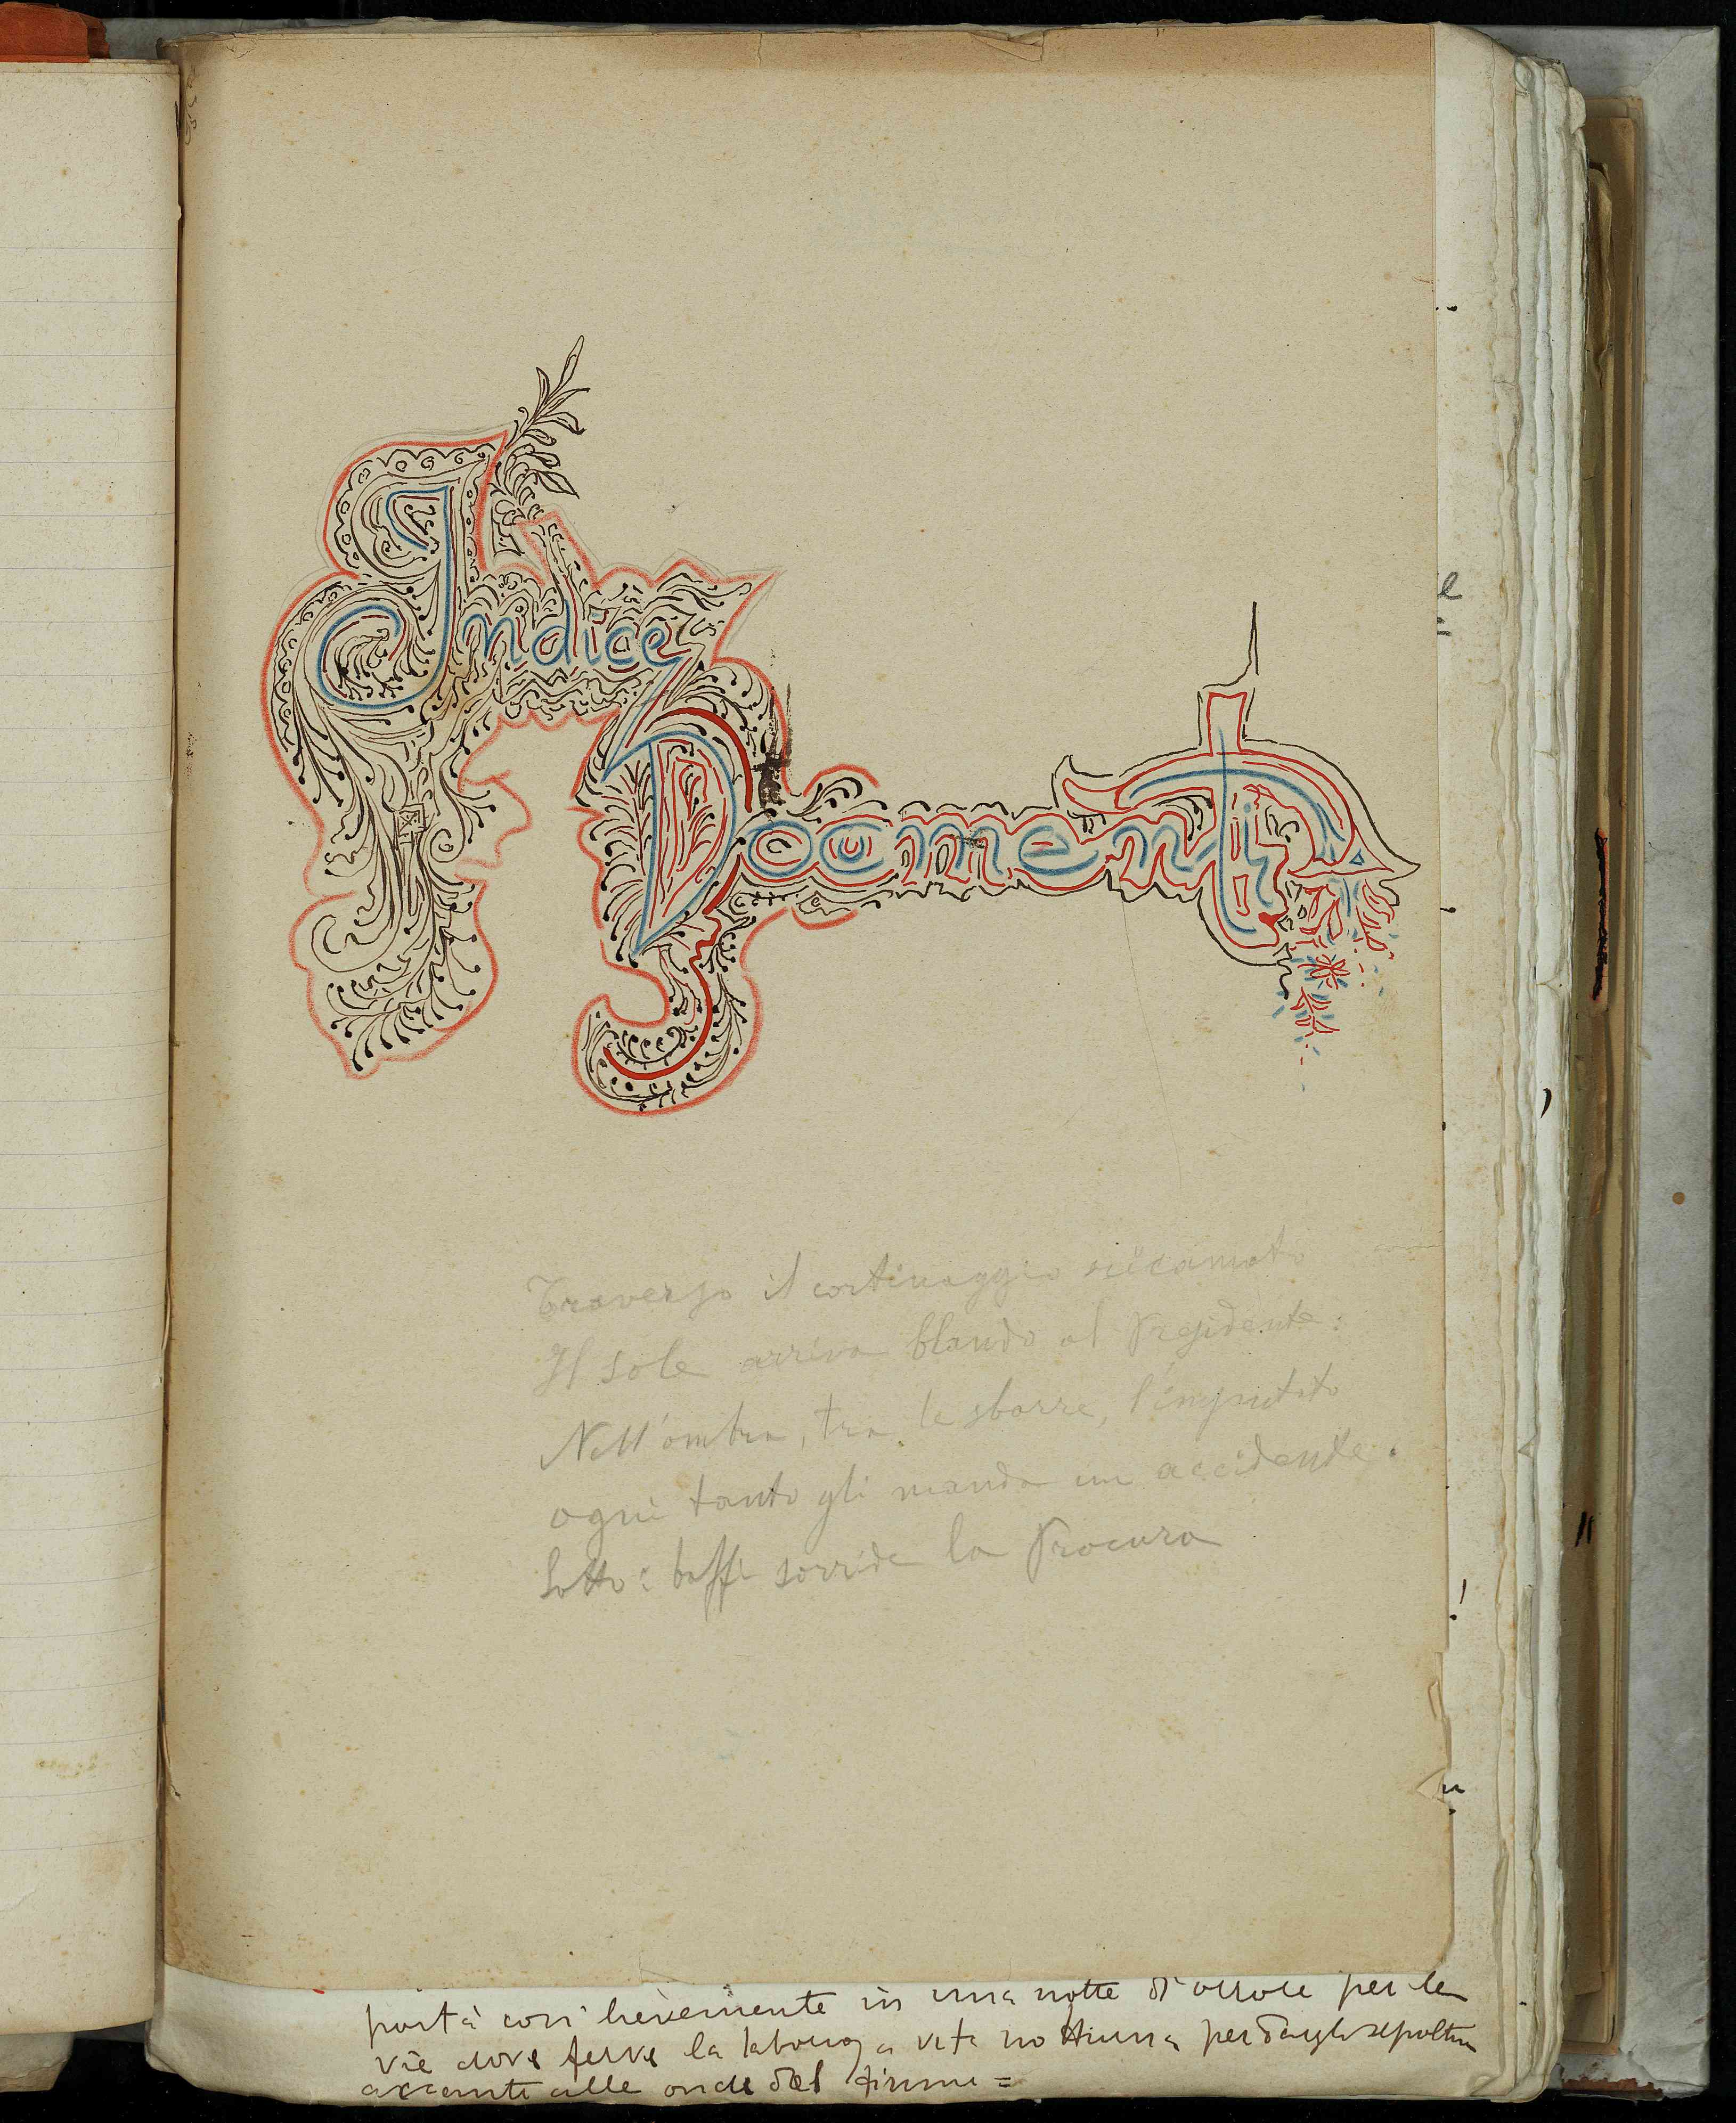 Indice
Documenti
Traverso il cortinaggio ricamato
Il sole arriva blando al Presidente:
Nell'ombra, tra le sbarre, l'imputato
ogni tanto gli manda un accidente.
Sotto i baffi sorride la Procura
portà così lievemente in una notte d'orrore per le
vie dove ferve la vita notturna per dargli sepoltura
accanto alle onde del fiume =